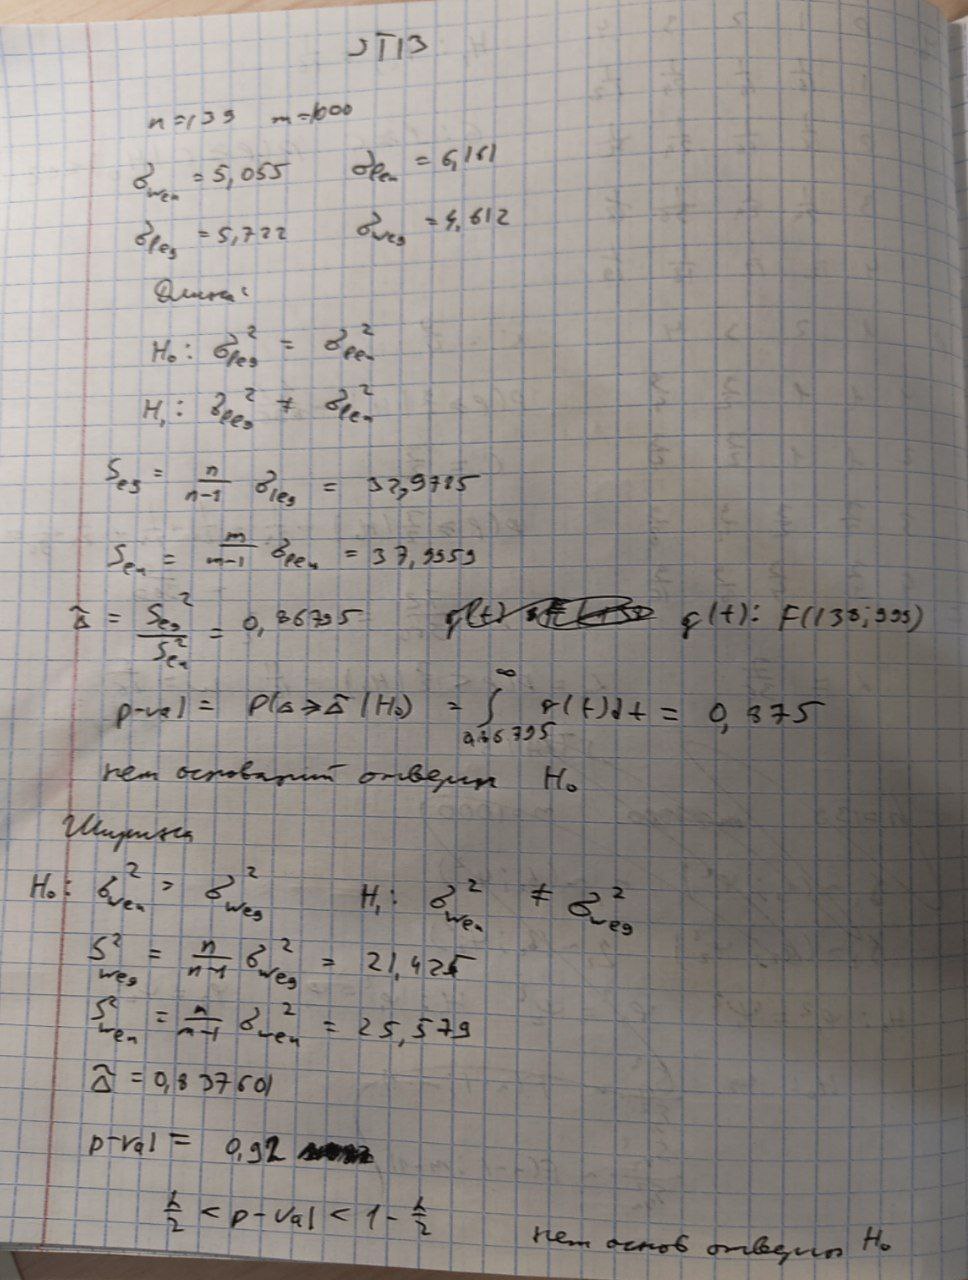 n=139 m=1000
σ_wen = 5,055 σ_len = 6,161
σ_leg = 5,722 σ_weg = 4,612
Длина:
H₀: σ_leg² = σ_len²
H₁: σ_leg² ≠ σ_len²
S_eg = n/(n-1) σ_leg = 32,9785
S_en = m/(m-1) σ_len = 37,9959
Δ̃ = S_eg²/S_en² = 0,86795 q(t): F(138;999)
p-val = P(Δ ≥ Δ̃ | H₀) = ∫_{0,86795}^∞ q(t)dt = 0,875
нет оснований отвергн H₀
Ширина
H₀: σ_wen² = σ_weg² H₁: σ_wen² ≠ σ_weg²
S²_weg = n/(n-1) σ_weg² = 21,425
S²_wen = n/(n-1) σ_wen² = 25,579
Δ̃ = 0,837601
p-val = 0,92
α/2 < p-val < 1 - α/2 нет основ отвергн H₀